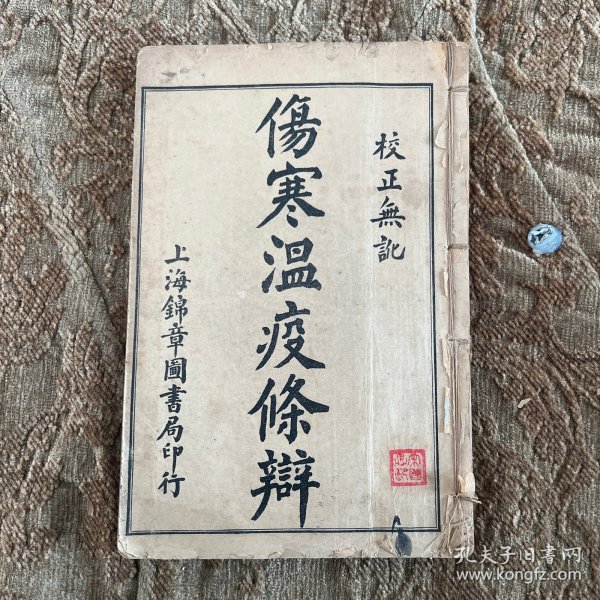 校正無訛
傷寒温疫條辯
上海錦章圖書局印行
孔夫子旧書网
www.kongfz.com